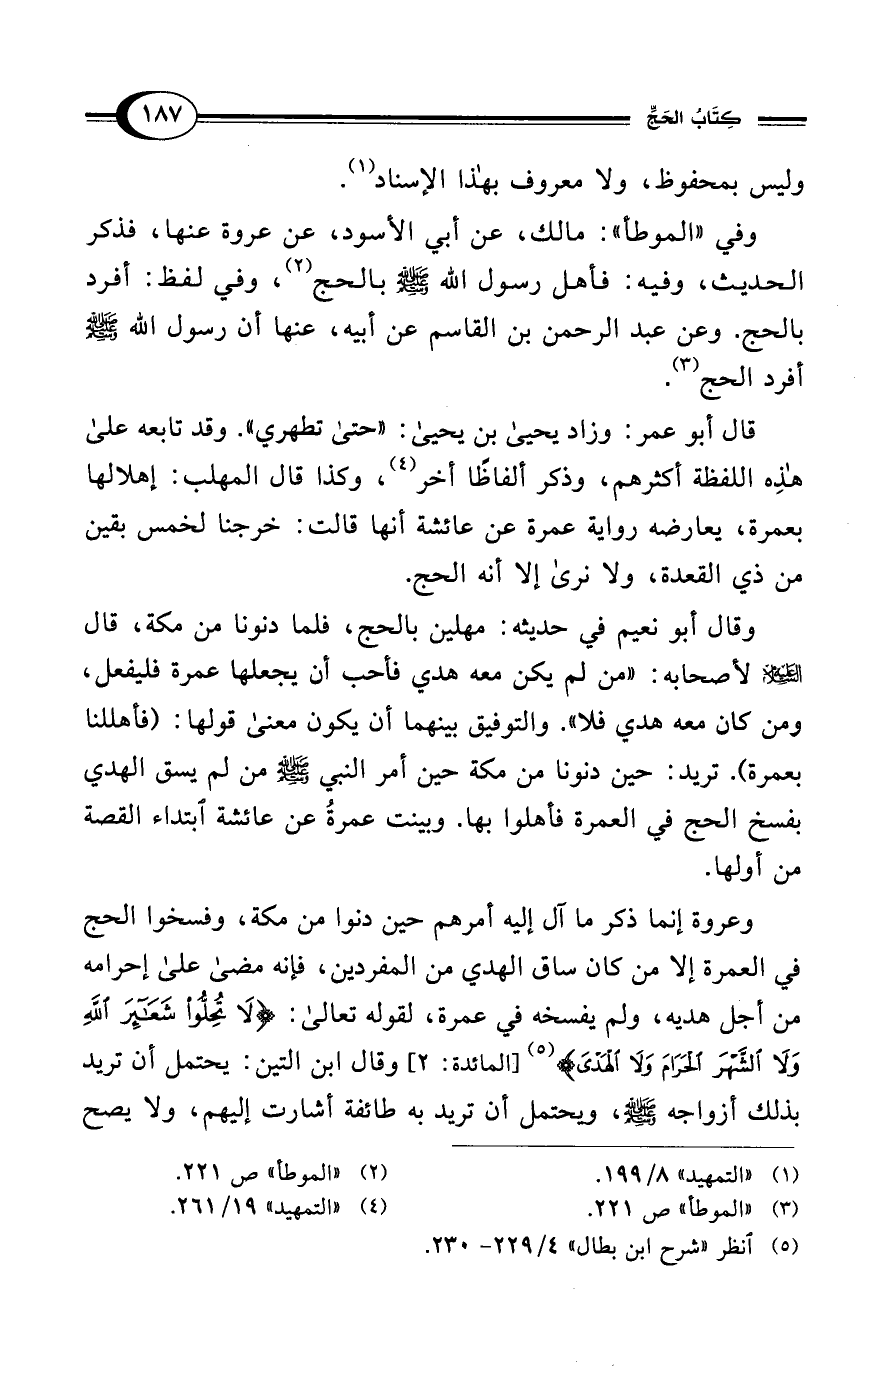 كِتَابُ الحَجِّ
١٨٧
وليس بمحفوظ، ولا معروف بهٰذا الإسناد(١).
وفي «الموطأ»: مالك، عن أبي الأسود، عن عروة عنها، فذكر
الحديث، وفيه: فأهل رسول الله ﷺ بالحج(٢)، وفي لفظ: أفرد
بالحج. وعن عبد الرحمن بن القاسم عن أبيه، عنها أن رسول الله ﷺ
أفرد الحج(٣).
قال أبو عمر: وزاد يحيىٰ بن يحيىٰ: «حتىٰ تطهري». وقد تابعه علىٰ
هٰذِه اللفظة أكثرهم، وذكر ألفاظًا أخر(٤)، وكذا قال المهلب: إهلالها
بعمرة، يعارضه رواية عمرة عن عائشة أنها قالت: خرجنا لخمس بقين
من ذي القعدة، ولا نرىٰ إلا أنه الحج.
وقال أبو نعيم في حديثه: مهلين بالحج، فلما دنونا من مكة، قال
عليه السلام لأصحابه: «من لم يكن معه هدي فأحب أن يجعلها عمرة فليفعل،
ومن كان معه هدي فلا». والتوفيق بينهما أن يكون معنىٰ قولها: (فأهللنا
بعمرة). تريد: حين دنونا من مكة حين أمر النبي ﷺ من لم يسق الهدي
بفسخ الحج في العمرة فأهلوا بها. وبينت عمرةُ عن عائشة ٱبتداء القصة
من أولها.
وعروة إنما ذكر ما آل إليه أمرهم حين دنوا من مكة، وفسخوا الحج
في العمرة إلا من كان ساق الهدي من المفردين، فإنه مضىٰ علىٰ إحرامه
من أجل هديه، ولم يفسخه في عمرة، لقوله تعالىٰ: ﴿لَا تُحِلُّوا۟ شَعَـٰٓئِرَ ٱللَّهِ
وَلَا ٱلشَّهْرَ ٱلْحَرَامَ وَلَا ٱلْهَدْىَ﴾(٥) [المائدة: ٢] وقال ابن التين: يحتمل أن تريد
بذلك أزواجه ﷺ، ويحتمل أن تريد به طائفة أشارت إليهم، ولا يصح
(١) «التمهيد» ٨/ ١٩٩.
(٢) «الموطأ» ص ٢٢١.
(٣) «الموطأ» ص ٢٢١.
(٤) «التمهيد» ١٩/ ٢٦١.
(٥) ٱنظر «شرح ابن بطال» ٤/ ٢٢٩- ٢٣٠.